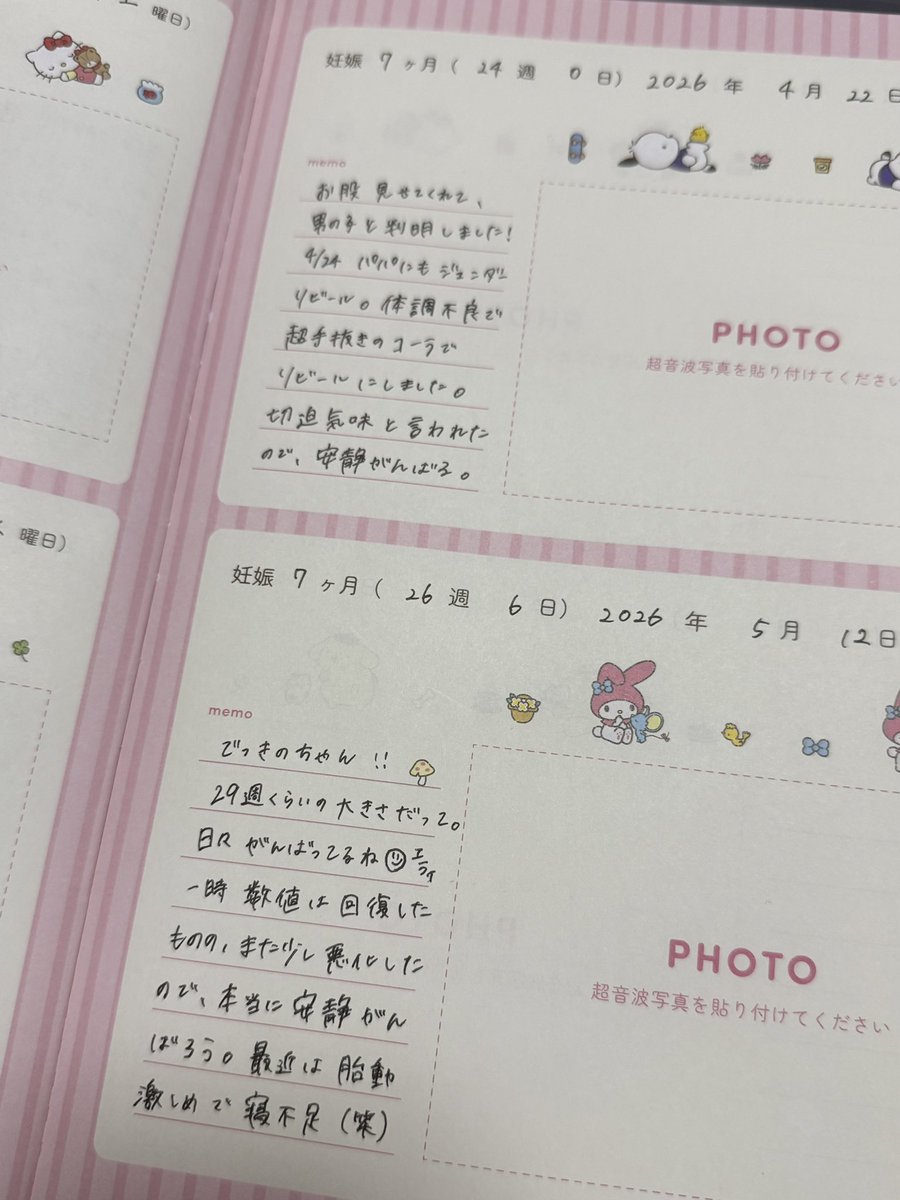 曜日)
妊娠 7 ヶ月( 24 週 0 日) 2026 年 4 月 22 日
memo
お股 見せてくれて、
男の子と判明しました!
4/24 パパにもジェンダー
リビール。体調不良で
超手抜きのコーラで
リビールにしました。
切迫気味と言われた
ので、安静がんばる。
PHOTO
超音波写真を貼り付けてください
曜日)
妊娠 7 ヶ月( 26 週 6 日) 2026 年 5 月 12 日
memo
でっきのちゃん!!
29週くらいの大きさだって。
日々がんばってるね エライ
一時 数値は回復した
ものの、また少し悪化した
ので、本当に安静がん
ばろう。最近は胎動
激しめで寝不足(笑)
PHOTO
超音波写真を貼り付けてください